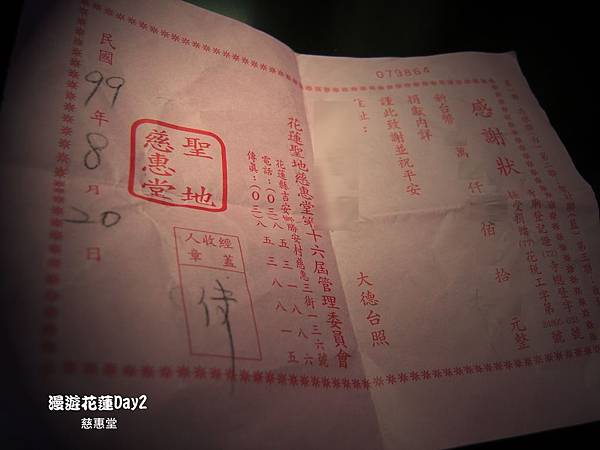 079864
感謝狀
新台幣 萬 仟 佰 拾 元整
捐獻內詳
謹此致謝並祝平安
大德台照
花蓮聖地慈惠堂第十六屆管理委員會
花蓮縣吉安鄉勝安村慈惠三街一三六號
電話:(〇三)八五三一八八六
傳真:(〇三)八五三八八一五
聖地
慈惠堂
經收人
蓋章
侍
民國99年8月20日
漫遊花蓮Day2
慈惠堂